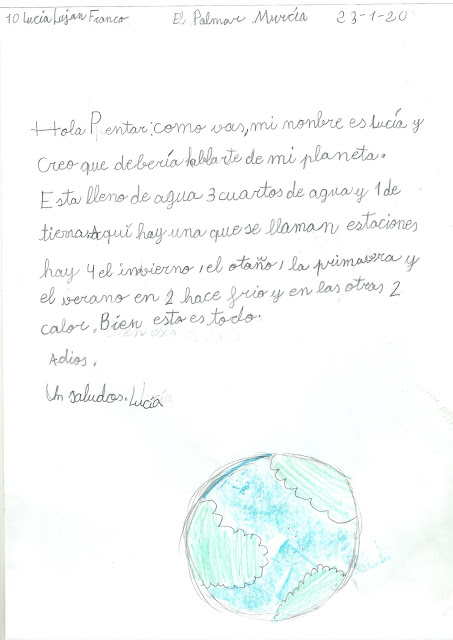 10 Lucía Lujan Franco El Palmar Murcia 23-1-20
Hola Pentar: como vas, mi nonbre es Lucía y
Creo que debería hablarte de mi planeta.
Esta lleno de agua 3 cuartos de agua y 1 de
tierra. Aquí hay una que se llaman estaciones
hay 4 el invierno, el otaño, la primavera y
el verano en 2 hace frio y en las otras 2
calor. Bien esto es todo.
Adios.
Un saludos. Lucía